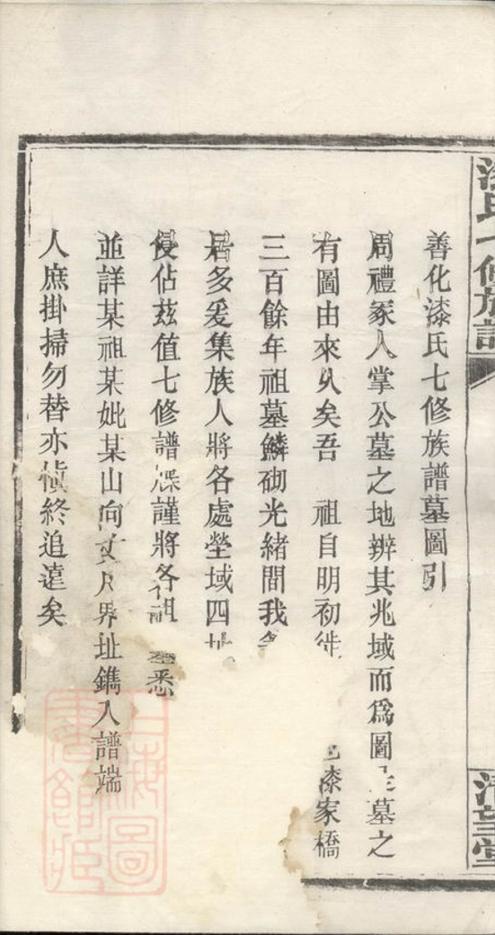 漆氏七修族譜
清望堂
善化漆氏七修族譜墓圖引
周禮冢人掌公墓之地辨其兆域而爲圖 墓之
有圖由來久矣吾 祖自明初徙 漆家橋
三百餘年祖墓鱗砌光緒間我
居多爰集族人將各處塋域四址
侵佔茲值七修譜牒謹將各祖 塋悉
並詳某祖某妣某山向丈尺界址鐫入譜端
人庶掛掃勿替亦慎終追遠矣
上海圖書館藏